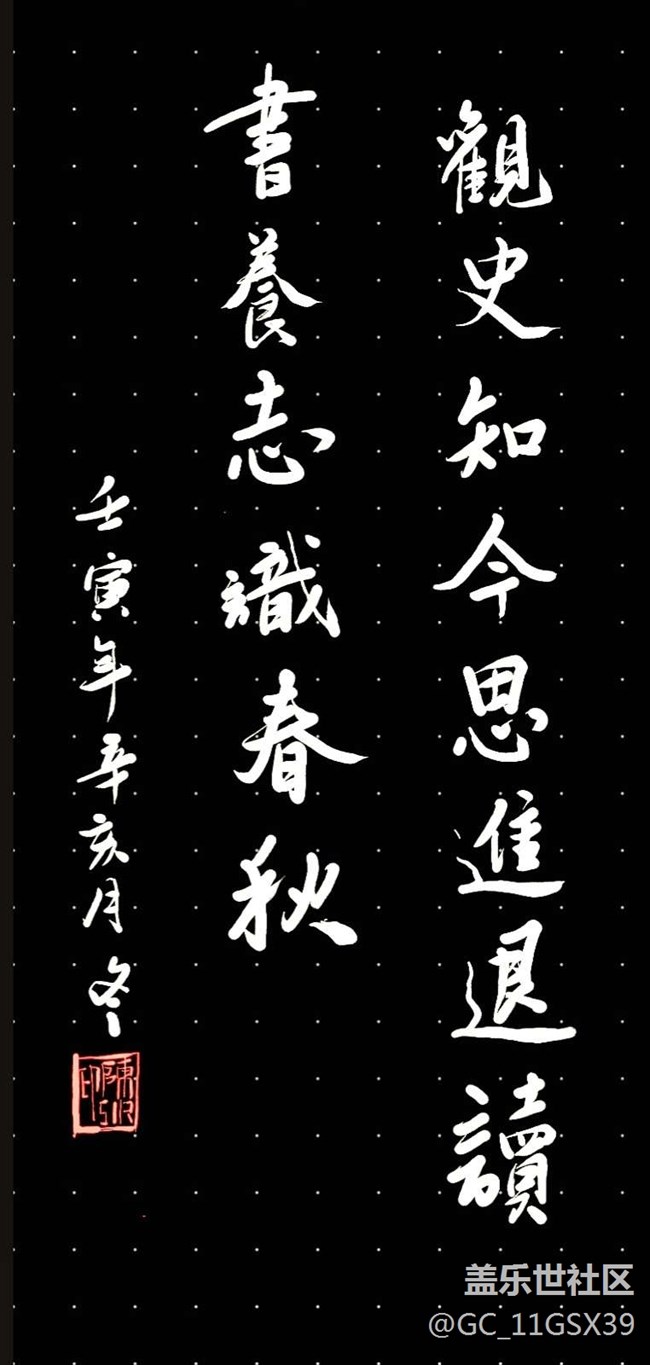 觀史知今思進退讀
書養志識春秋
壬寅年辛亥月冬
陳SIR印
盖乐世社区
@GC_11GSX39